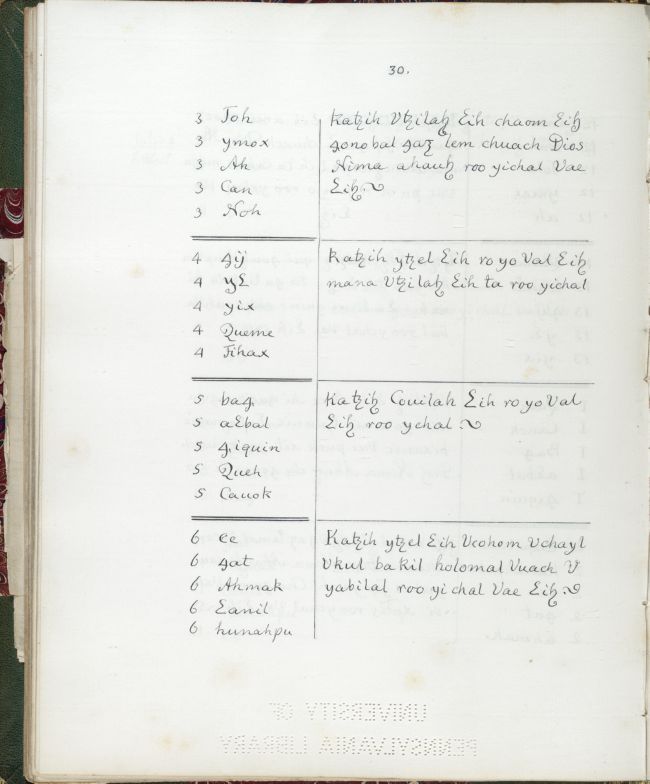 30.
3 Toh
3 ymox
3 Ah
3 Can
3 Noh
Katzih Vtzilah Eih chaom Eih
ꜭonobal ꜭaꜩ lem chuach Dios
Nima ahauh roo yichal Vae
Eih.
4 ꜭij
4 yE
4 yix
4 Queme
4 Tihax
Katzih ytzel Eih ro yo Val Eih
mana Vtzilah Eih ta roo yichal
5 baꜭ
5 aEbal
5 ꜭiquin
5 Queh
5 Cauok
Katzih Couilah Eih ro yo Val
Eih roo ychal.
6 Ce
6 ꜭat
6 Ahmak
6 Eanil
6 hunahpu
Katzih ytzel Eih Vcohom Vchayl
Vkul bakil holomal Vuach V
yabilal roo yi chal Vae Eih.
UNIVERSITY OF
PENNSYLVANIA LIBRARY